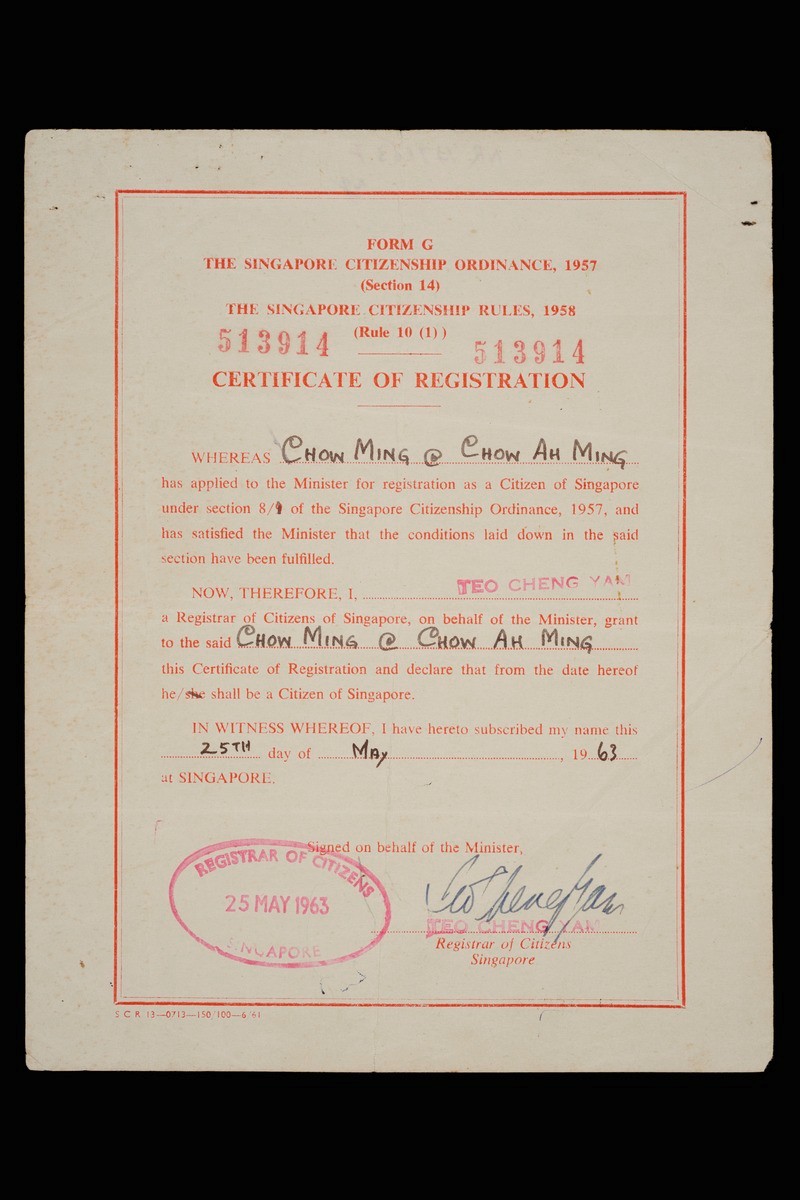 FORM G
THE SINGAPORE CITIZENSHIP ORDINANCE, 1957
(Section 14)
THE SINGAPORE CITIZENSHIP RULES, 1958
(Rule 10 (1) )
513914 513914
CERTIFICATE OF REGISTRATION
WHEREAS CHOW MING @ CHOW AH MING
has applied to the Minister for registration as a Citizen of Singapore
under section 8/9 of the Singapore Citizenship Ordinance, 1957, and
has satisfied the Minister that the conditions laid down in the said
section have been fulfilled.
NOW, THEREFORE, I, TEO CHENG YAM
a Registrar of Citizens of Singapore, on behalf of the Minister, grant
to the said CHOW MING @ CHOW AH MING
this Certificate of Registration and declare that from the date hereof
he/she shall be a Citizen of Singapore.
IN WITNESS WHEREOF, I have hereto subscribed my name this
25TH day of MAY, 1963
at SINGAPORE.
Signed on behalf of the Minister,
REGISTRAR OF CITIZENS
25 MAY 1963
SINGAPORE
Teo Cheng Yam
TEO CHENG YAM
Registrar of Citizens
Singapore
S C R 13—0713—150/100—6/61